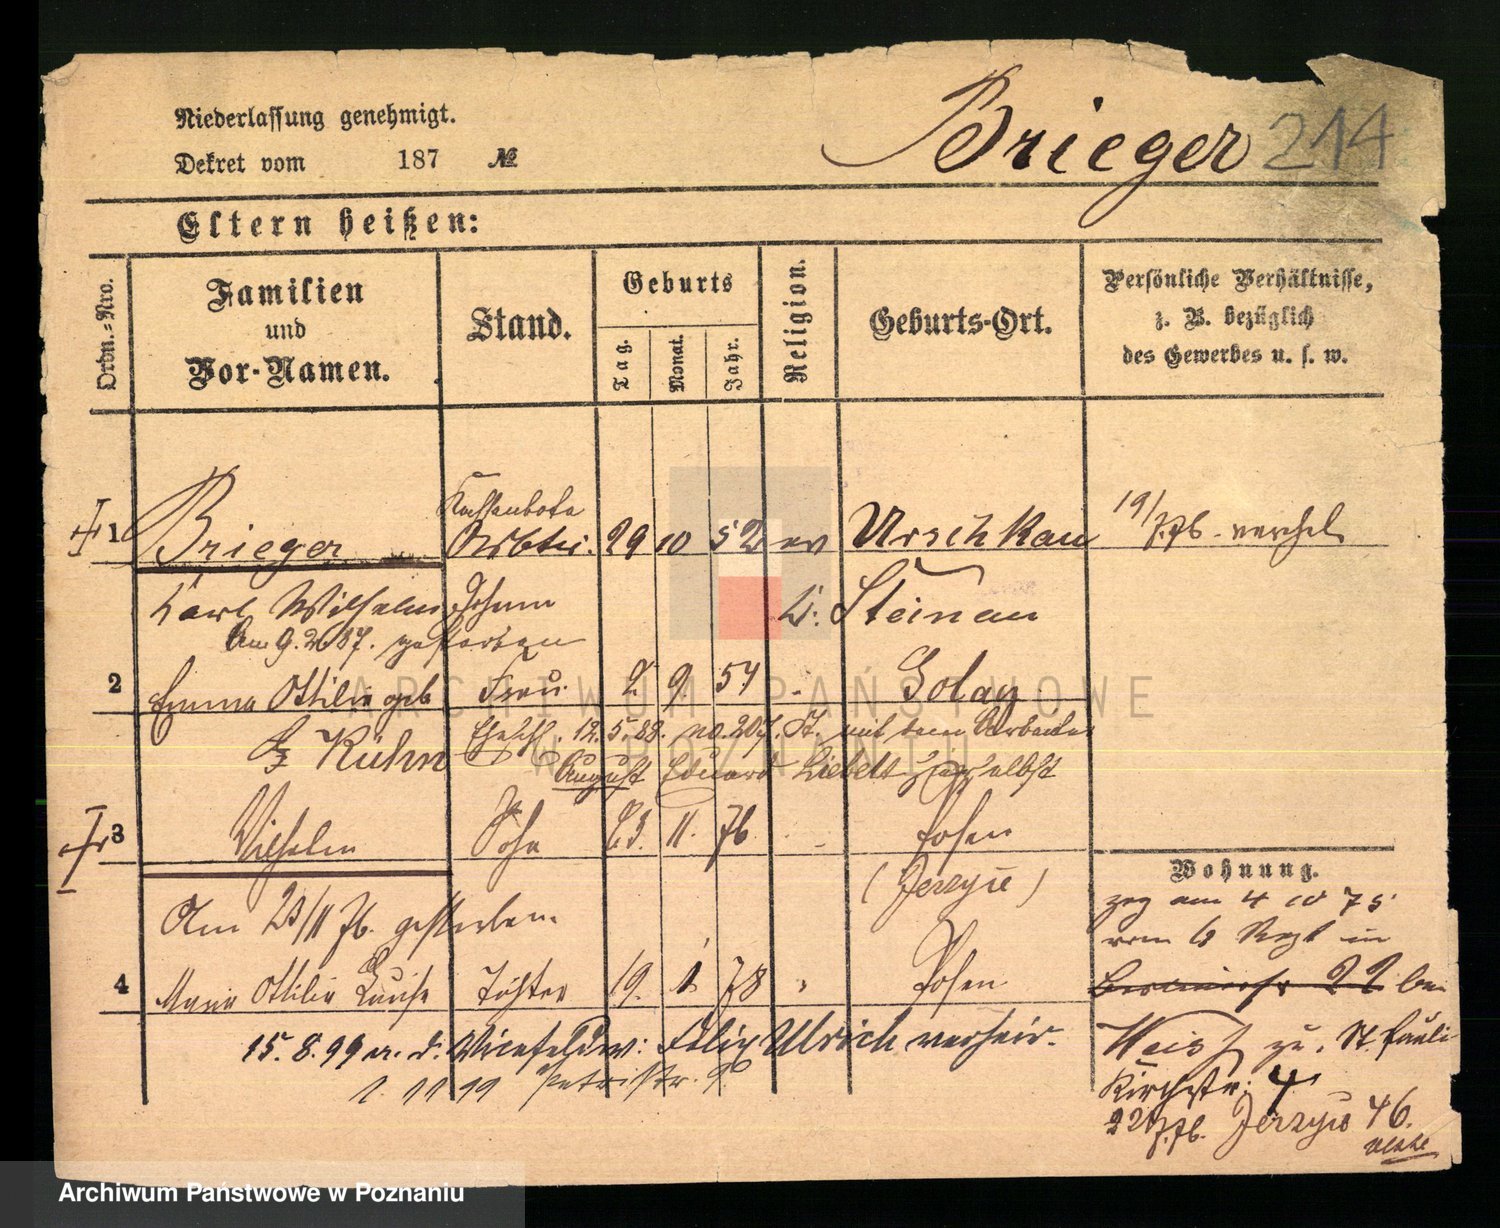 Niederlassung genehmigt.
Dekret vom 187 №
Brieger 214
Eltern heißen:
Ordn.-Nro.
Familien
und
Vor-Namen.
Stand.
Geburts
Tag.
Monat.
Jahr.
Religion.
Geburts-Ort.
Persönliche Verhältnisse,
z. B. bezüglich
des Gewerbes u. s. w.
1 Brieger Kassenbote
Arbtr. 29 10 52 ev Urschkau 19/7.76. verehel.
Karl Wilhelm Johann Kr. Steinau
Am 9.2.87. gestorben
2 Emma Ottilie geb Frau 2 9 57 Golay
Kühn Ehschl. 12.5.88. no. 207. St. mit dem Arbeiter
August Eduard Liebelt hierselbst
3 Wilhelm Sohn 23. 11. 76 Posen
(Jerzyce)
Am 23/11 76. gestorben.
4 Maria Ottilie Luise Tochter 19. 1 78 Posen
15.8.99 a. d. Vicefeldw: Felix Ulrich verheir.
1. 11 99 Petristr. 9
Wohnung.
zog am 4 10 75
vom 6 Regt in
22 bei
Weiss zu. St. Pauli
Kirchstr: 4
22/7.76. Jerzyce 46.
ARCHIWUM PAŃSTWOWE
W POZNANIU
Archiwum Państwowe w Poznaniu